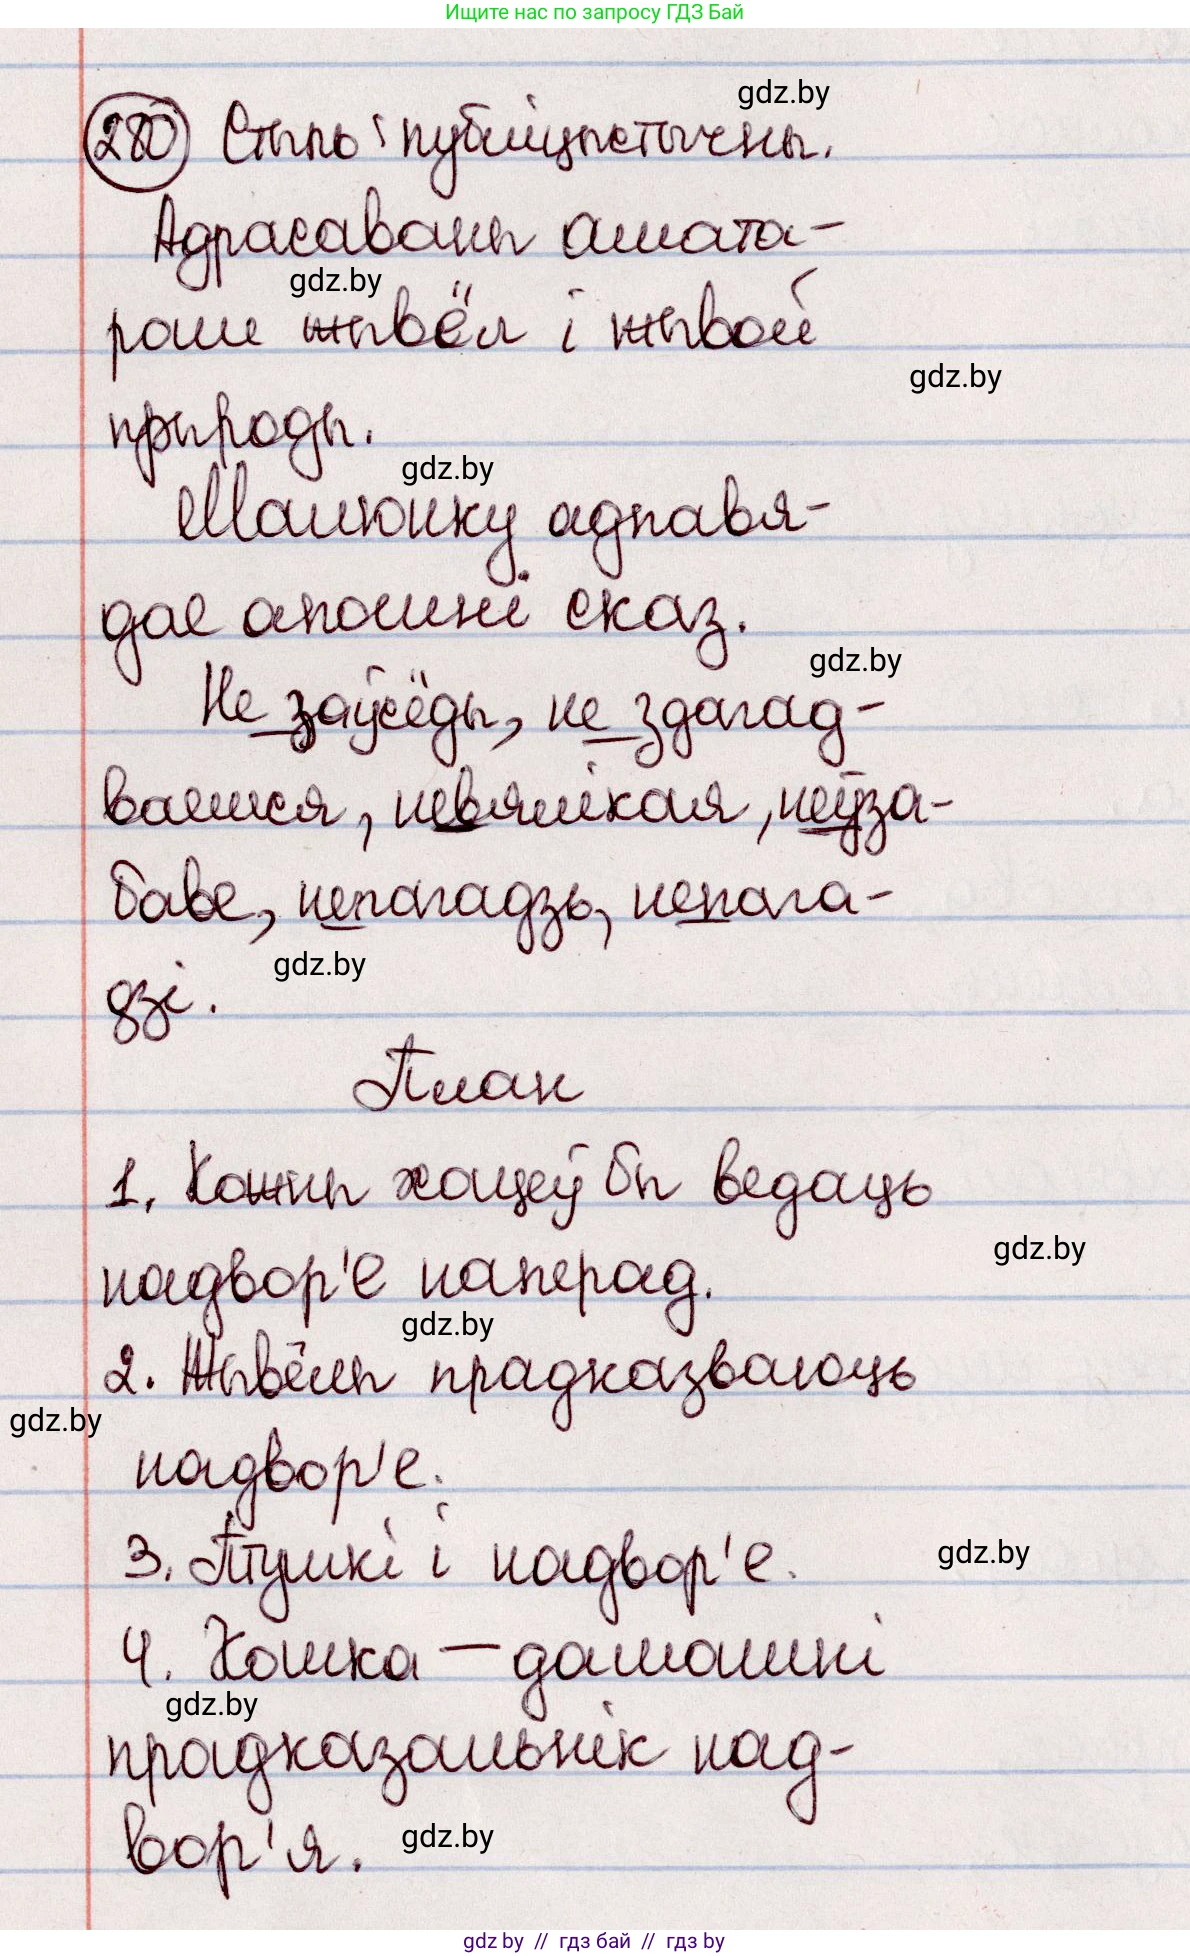 Ищите нас по запросу ГДЗ Бай
gdz.by
280 Стыль: публіцыстычны.
Адрасаваны амата-
gdz.by
рам жывёл і жывой
gdz.by
прыроды.
gdz.by
Малюнку адпавя-
дае апошні сказ.
gdz.by
Не заўсёды, не здагад-
ваемся, невялікая, неўза-
баве, непагадзь, непага-
gdz.by
дзі.
План
1. Кожны хацеў бы ведаць
gdz.by
надвор'е наперад.
gdz.by
2. Жывёлы прадказваюць
gdz.by
надвор'е.
3. Птушкі і надвор'е.
gdz.by
4. Кошка — дамашні
gdz.by
прадказальнік над-
вор'я.
gdz.by
gdz.by // гдз бай // gdz.by